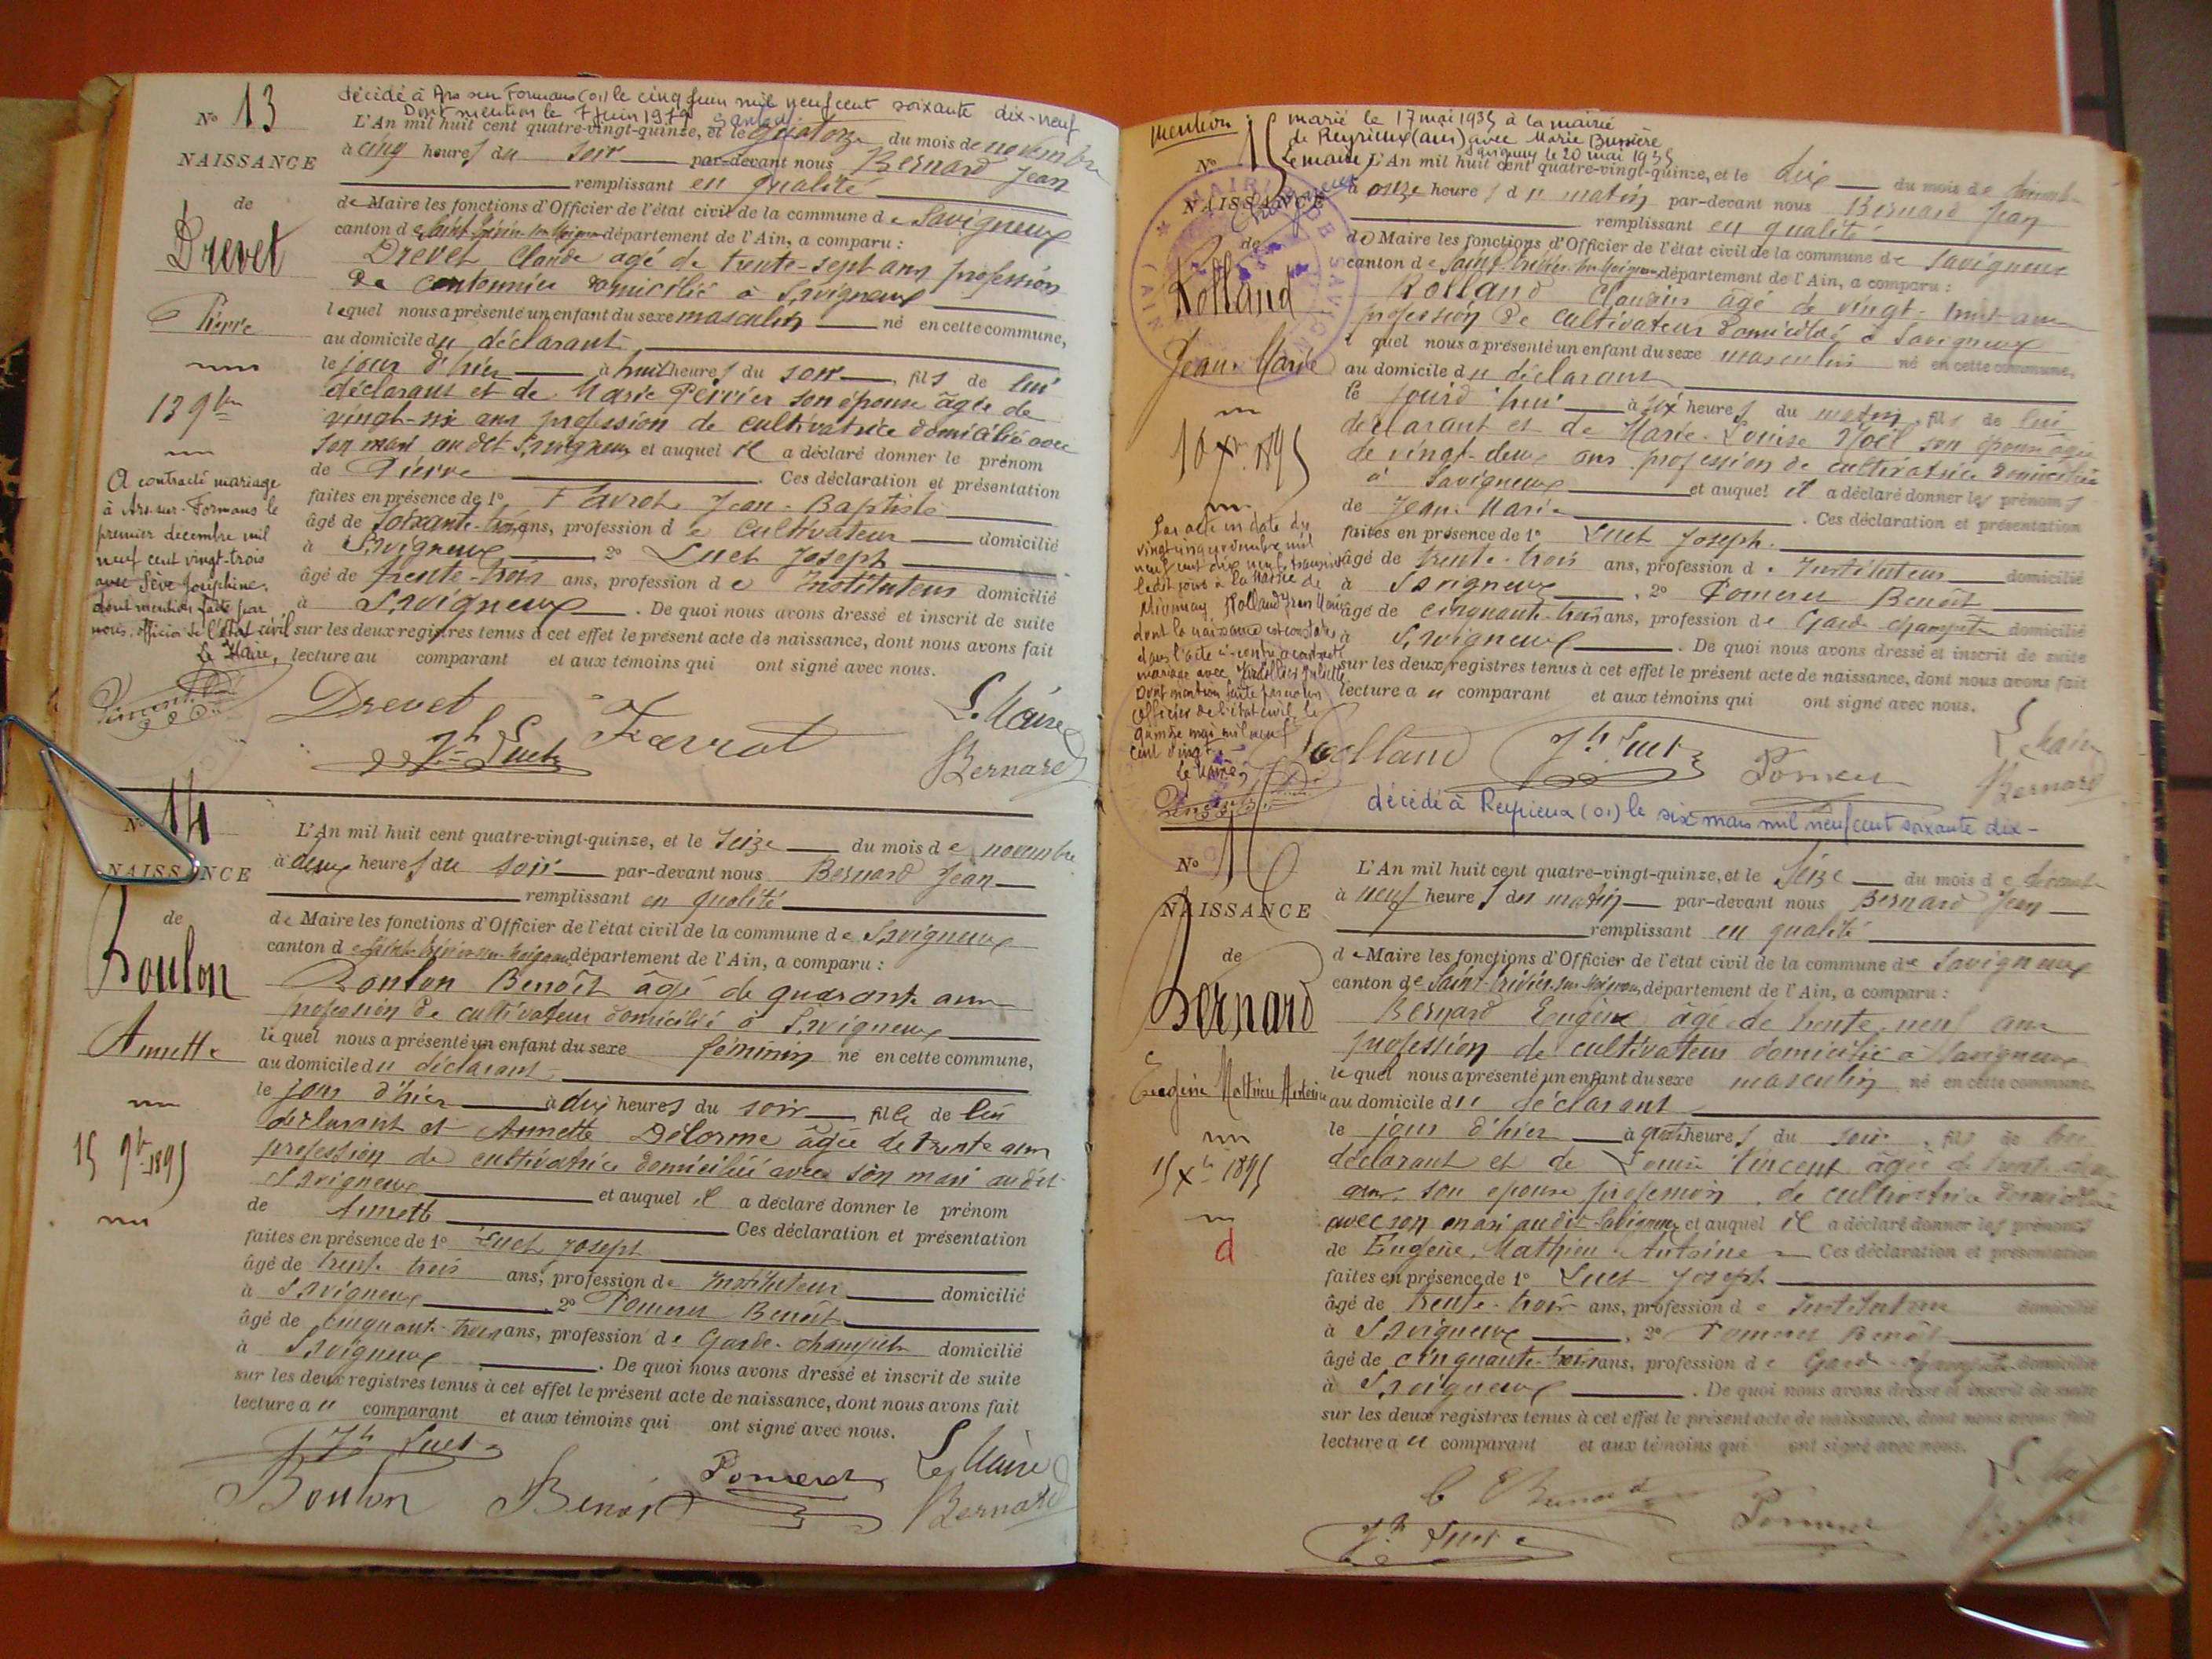 N° 13
décédé à Ars sur Formans (01) le cinq juin mil neuf cent soixante dix-neuf
Dont mention le 7 juin 1979
L'An mil huit cent quatre-vingt-quinze, et le quatorze du mois de novembre
NAISSANCE
à cinq heures du soir par-devant nous Bernard Jean
remplissant en qualité
de
de Maire les fonctions d'Officier de l'état civil de la commune de Savigneux
Drevet
canton de Saint-Trivier-sur-Moignans département de l'Ain, a comparu :
Drevet Claude agé de trente-sept ans profession
de cantonnier domicilié à Savigneux
Pierre
lequel nous a présenté un enfant du sexe masculin né en cette commune,
au domicile du déclarant
le jour d'hier à huit heures du soir, fils de lui
13 9bre
déclarant et de Marie Perrier son épouse âgée de
vingt-six ans profession de cultivatrice domiciliée avec
son mari au dit Savigneux et auquel il a déclaré donner le prénom
de Pierre. Ces déclaration et présentation
faites en présence de 1° Favrot Jean-Baptiste
âgé de soixante-trois ans, profession de cultivateur domicilié
à Savigneux 2° Luet Joseph
âgé de trente-trois ans, profession de Instituteur domicilié
à Savigneux. De quoi nous avons dressé et inscrit de suite
sur les deux registres tenus à cet effet le présent acte de naissance, dont nous avons fait
lecture au comparant et aux témoins qui ont signé avec nous.
A contracté mariage
à Ars-sur-Formans le
premier decembre mil
neuf cent vingt-trois
avec Sève Joséphine,
dont mention faite par
nous, officier de l'état civil
Le Maire,
Drevet
Favrot
Le Maire
Jh Luet
Bernard
N° 14
L'An mil huit cent quatre-vingt-quinze, et le seize du mois de novembre
NAISSANCE
à deux heures du soir par-devant nous Bernard Jean
remplissant en qualité
de
de Maire les fonctions d'Officier de l'état civil de la commune de Savigneux
Boulon
canton de Saint-Trivier-sur-Moignans département de l'Ain, a comparu :
Boulon Benoît âgé de quarante ans
profession de cultivateur domicilié à Savigneux
Annette
lequel nous a présenté un enfant du sexe féminin né en cette commune,
au domicile du déclarant
le jour d'hier à dix heures du soir fille de lui
15 9bre 1895
déclarant et Annette Delorme âgée de trente ans
profession de cultivatrice domiciliée avec son mari au dit
Savigneux et auquel il a déclaré donner le prénom
de Annette Ces déclaration et présentation
faites en présence de 1° Luet Joseph
âgé de trente-trois ans, profession de Instituteur domicilié
à Savigneux, 2° Pomeret Benoît
âgé de cinquante-trois ans, profession de Garde-champêtre domicilié
à Savigneux. De quoi nous avons dressé et inscrit de suite
sur les deux registres tenus à cet effet le présent acte de naissance, dont nous avons fait
lecture au comparant et aux témoins qui ont signé avec nous.
Jh Luet
Le Maire
Boulon Benoit Pomeret
Bernard
Mention : marié le 17 mai 1935 à la mairie
de Reyrieux (ain) avec Marie Bussière
Savigneux le 20 mai 1935
Le maire
N° 15
L'An mil huit cent quatre-vingt-quinze, et le dix du mois de décembre
NAISSANCE
à onze heures du matin par-devant nous Bernard Jean
remplissant en qualité
de
de Maire les fonctions d'Officier de l'état civil de la commune de Savigneux
Rolland
canton de Saint-Trivier-sur-Moignans département de l'Ain, a comparu :
Rolland Claudius âgé de vingt-huit ans
profession de cultivateur domicilié à Savigneux
Jean-Marie
lequel nous a présenté un enfant du sexe masculin né en cette commune,
au domicile du déclarant
le jourd'hui à six heures du matin, fils de lui
10 Xbre 1895
déclarant et de Marie-Louise Noël son épouse âgée
de vingt-deux ans profession de cultivatrice domiciliée
à Savigneux et auquel il a déclaré donner les prénoms
de Jean-Marie. Ces déclaration et présentation
faites en présence de 1° Luet Joseph
âgé de trente-trois ans, profession de Instituteur domicilié
à Savigneux, 2° Pomeret Benoît
âgé de cinquante-trois ans, profession de Garde-champêtre domicilié
à Savigneux. De quoi nous avons dressé et inscrit de suite
sur les deux registres tenus à cet effet le présent acte de naissance, dont nous avons fait
lecture au comparant et aux témoins qui ont signé avec nous.
Par acte en date du
vingt cinq novembre mil
neuf cent dix neuf, transcrit
ledit jour à la Mairie de
Mionnay Rolland Jean Marie
dont la naissance est constatée
dans l'acte ci-contre a contracté
mariage avec Juliette
Dont mention faite par nous
Officier de l'état civil, le
quinze mai mil neuf
cent vingt
Le Maire,
Rolland Jh Luet Pomeret
Le Maire
Bernard
décédé à Reyrieux (01) le six mars mil neuf cent soixante dix-
N° 16
L'An mil huit cent quatre-vingt-quinze, et le seize du mois de décembre
NAISSANCE
à neuf heures du matin par-devant nous Bernard Jean
remplissant en qualité
de
de Maire les fonctions d'Officier de l'état civil de la commune de Savigneux
Bernard
canton de Saint-Trivier-sur-Moignans département de l'Ain, a comparu :
Bernard Eugène âgé de trente-neuf ans
profession de cultivateur domicilié à Savigneux
Eugène Mathieu Antoine
lequel nous a présenté un enfant du sexe masculin né en cette commune,
au domicile du déclarant
le jour d'hier à heures du soir, fils de lui
15 Xbre 1895
déclarant et de Louise Vincent âgée de trente-deux
ans, son épouse profession de cultivatrice domiciliée
avec son mari au dit Savigneux et auquel il a déclaré donner les prénoms
d
de Eugène, Mathieu Antoine Ces déclaration et présentation
faites en présence de 1° Luet Joseph
âgé de trente-trois ans, profession de Instituteur domicilié
à Savigneux, 2° Pomeret Benoît
âgé de cinquante-trois ans, profession de Garde-champêtre domicilié
à Savigneux. De quoi nous avons dressé et inscrit de suite
sur les deux registres tenus à cet effet le présent acte de naissance, dont nous avons fait
lecture au comparant et aux témoins qui ont signé avec nous.
Le Maire
Bernard Pomeret
Jh Luet
Bernard